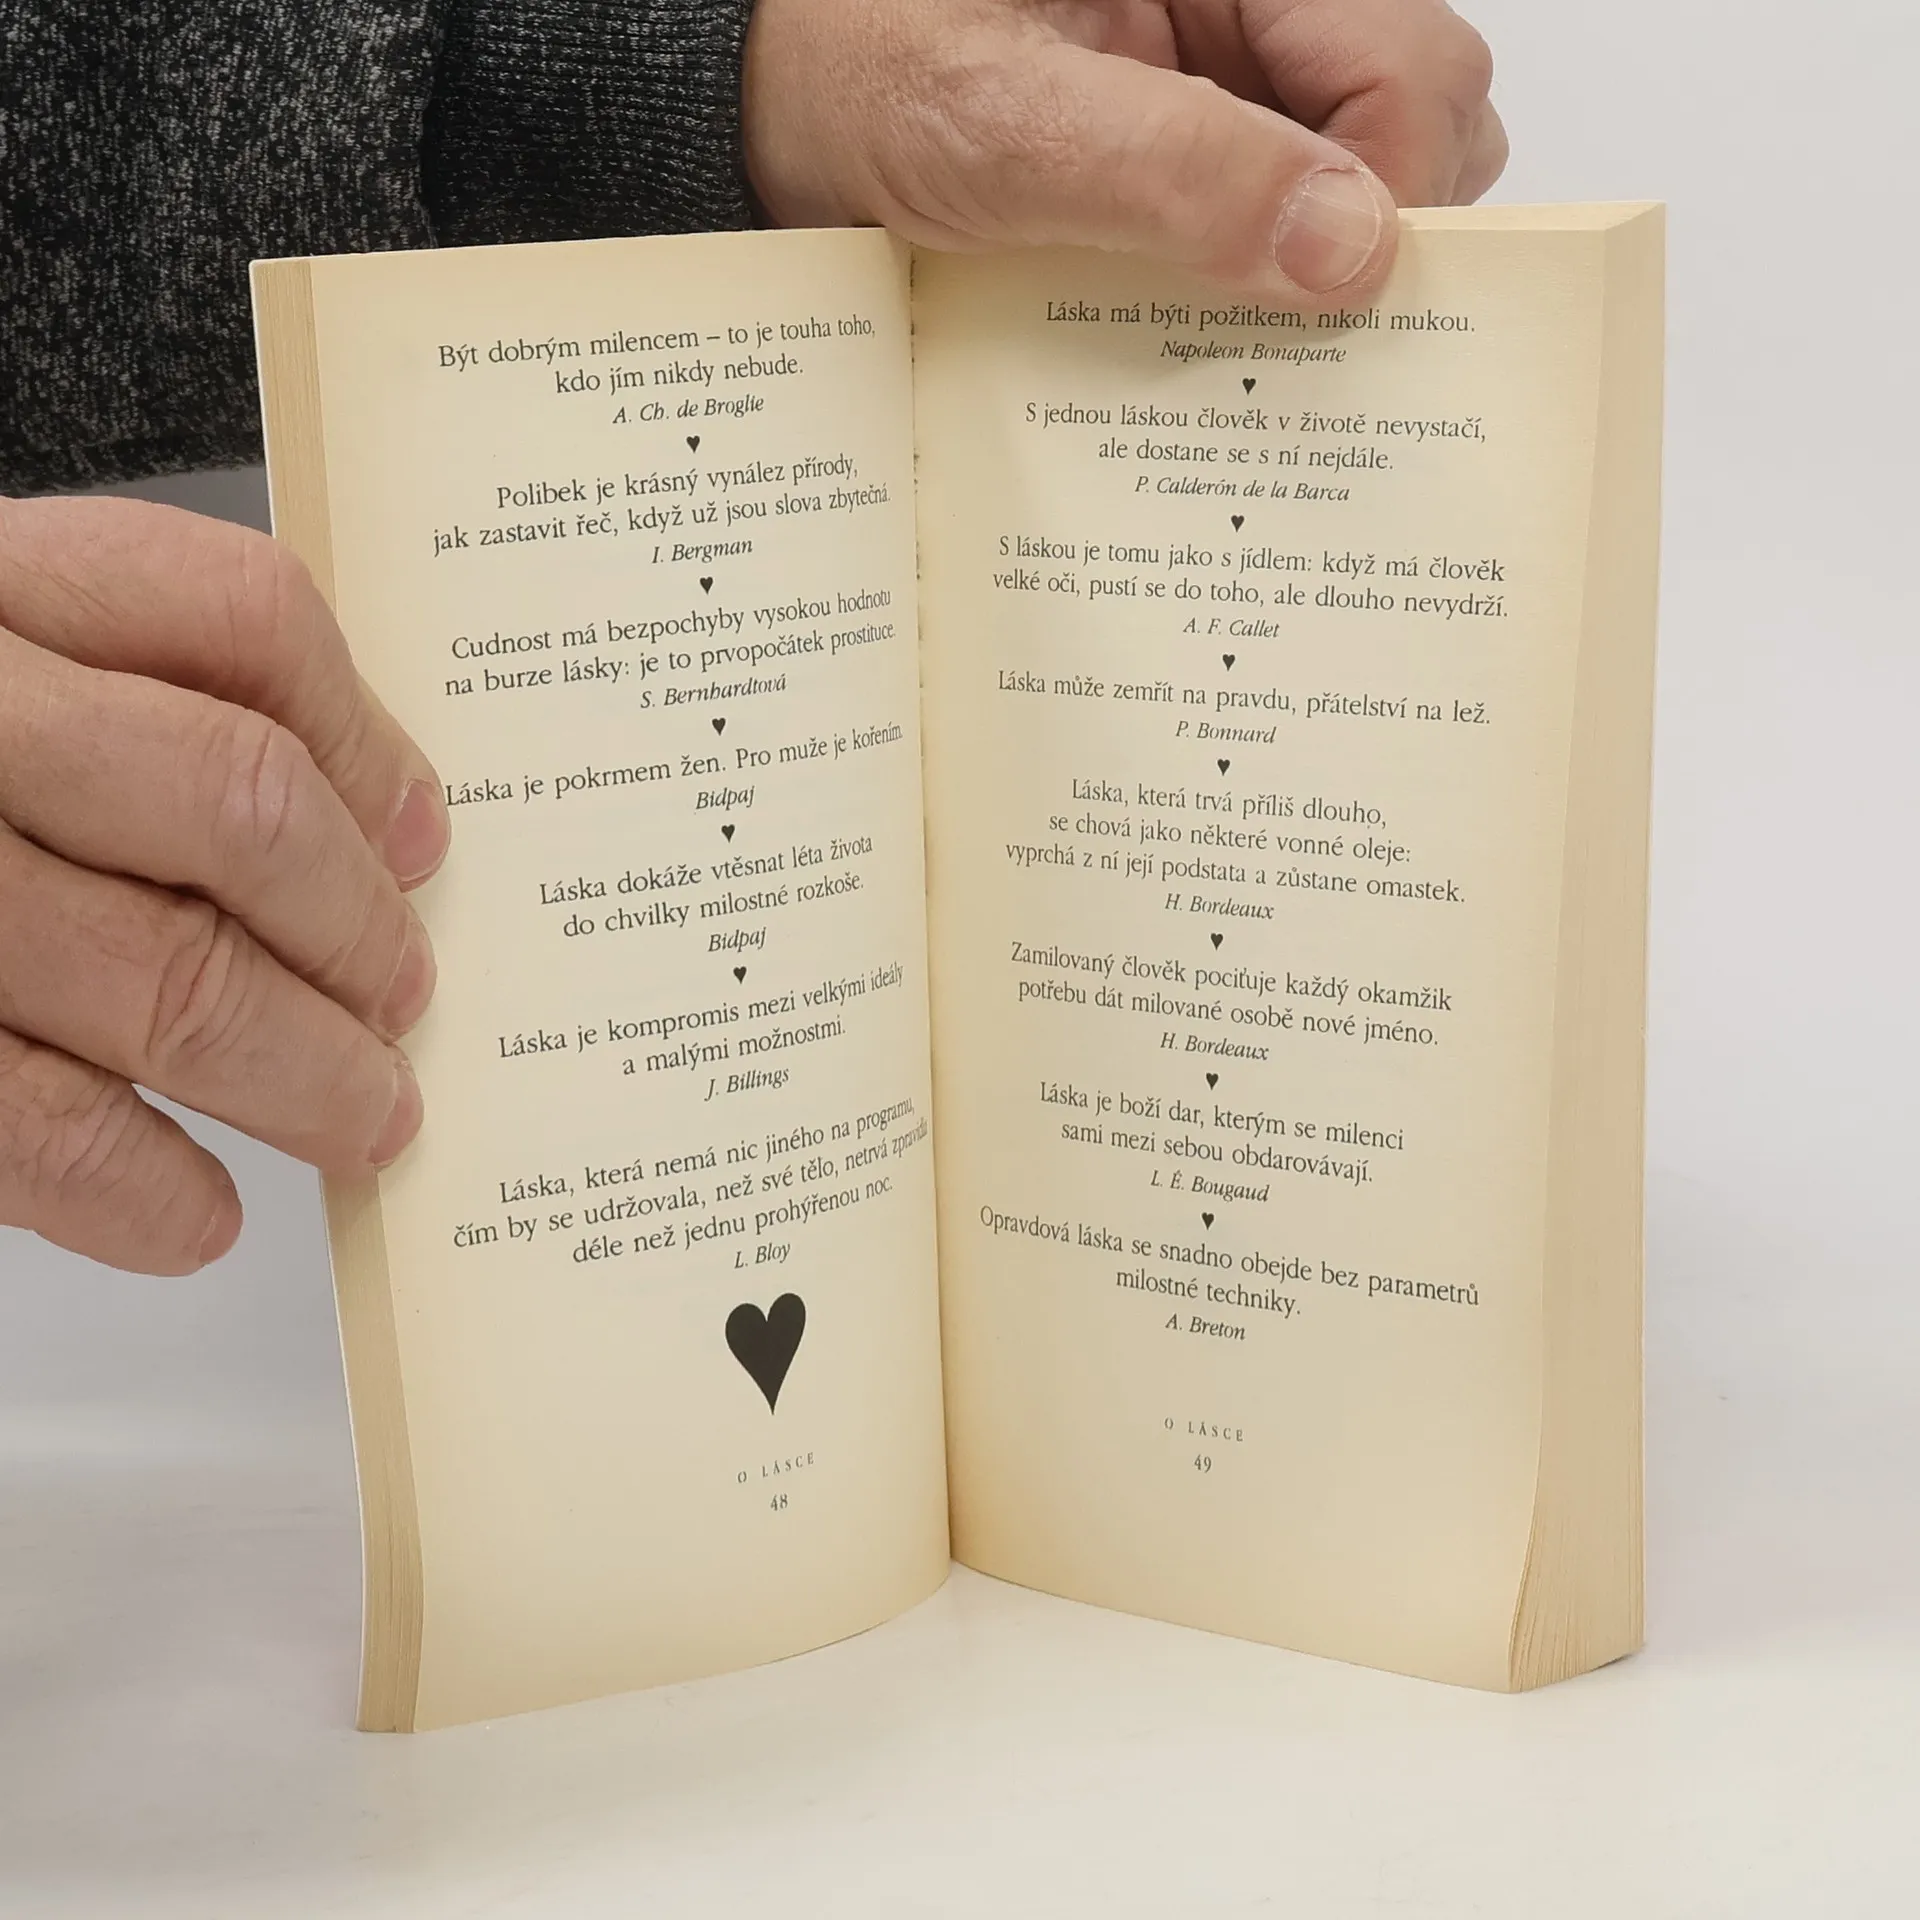 Být dobrým milencem – to je touha toho,
kdo jím nikdy nebude.
A. Ch. de Broglie
Polibek je krásný vynález přírody,
jak zastavit řeč, když už jsou slova zbytečná.
I. Bergman
Cudnost má bezpochyby vysokou hodnotu
na burze lásky: je to prvopočátek prostituce.
S. Bernhardtová
Láska je pokrmem žen. Pro muže je kořením.
Bidpaj
Láska dokáže vtěsnat léta života
do chvilky milostné rozkoše.
Bidpaj
Láska je kompromis mezi velkými ideály
a malými možnostmi.
J. Billings
Láska, která nemá nic jiného na programu,
čím by se udržovala, než své tělo, netrvá zpravidla
déle než jednu prohýřenou noc.
L. Bloy
O LÁSCE
48
Láska má býti požitkem, nikoli mukou.
Napoleon Bonaparte
S jednou láskou člověk v životě nevystačí,
ale dostane se s ní nejdále.
P. Calderón de la Barca
S láskou je tomu jako s jídlem: když má člověk
velké oči, pustí se do toho, ale dlouho nevydrží.
A. F. Callet
Láska může zemřít na pravdu, přátelství na lež.
P. Bonnard
Láska, která trvá příliš dlouho,
se chová jako některé vonné oleje:
vyprchá z ní její podstata a zůstane omastek.
H. Bordeaux
Zamilovaný člověk pociťuje každý okamžik
potřebu dát milované osobě nové jméno.
H. Bordeaux
Láska je boží dar, kterým se milenci
sami mezi sebou obdarovávají.
L. É. Bougaud
Opravdová láska se snadno obejde bez parametrů
milostné techniky.
A. Breton
O LÁSCE
49